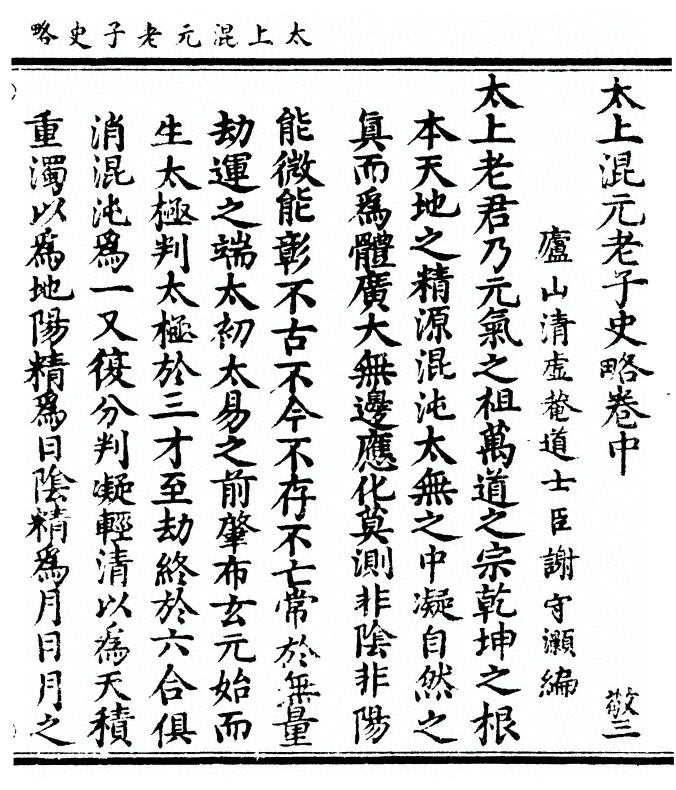 太上混元老子史略
太上混元老子史略卷中
敬三
廬山清虛菴道士臣謝守灝編
太上老君乃元氣之祖萬道之宗乾坤之根
本天地之精源混沌太無之中凝自然之
眞而爲體廣大無邊應化莫測非陰非陽
能微能彰不古不今不存不亡常於無量
劫運之端太初太易之前肇布玄元始而
生太極判太極於三才至劫終於六合俱
消混沌爲一又復分判凝輕清以爲天積
重濁以爲地陽精爲日陰精爲月日月之